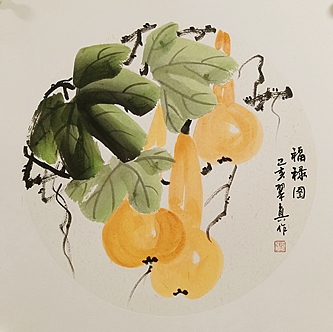 福禄图
己亥翠真作